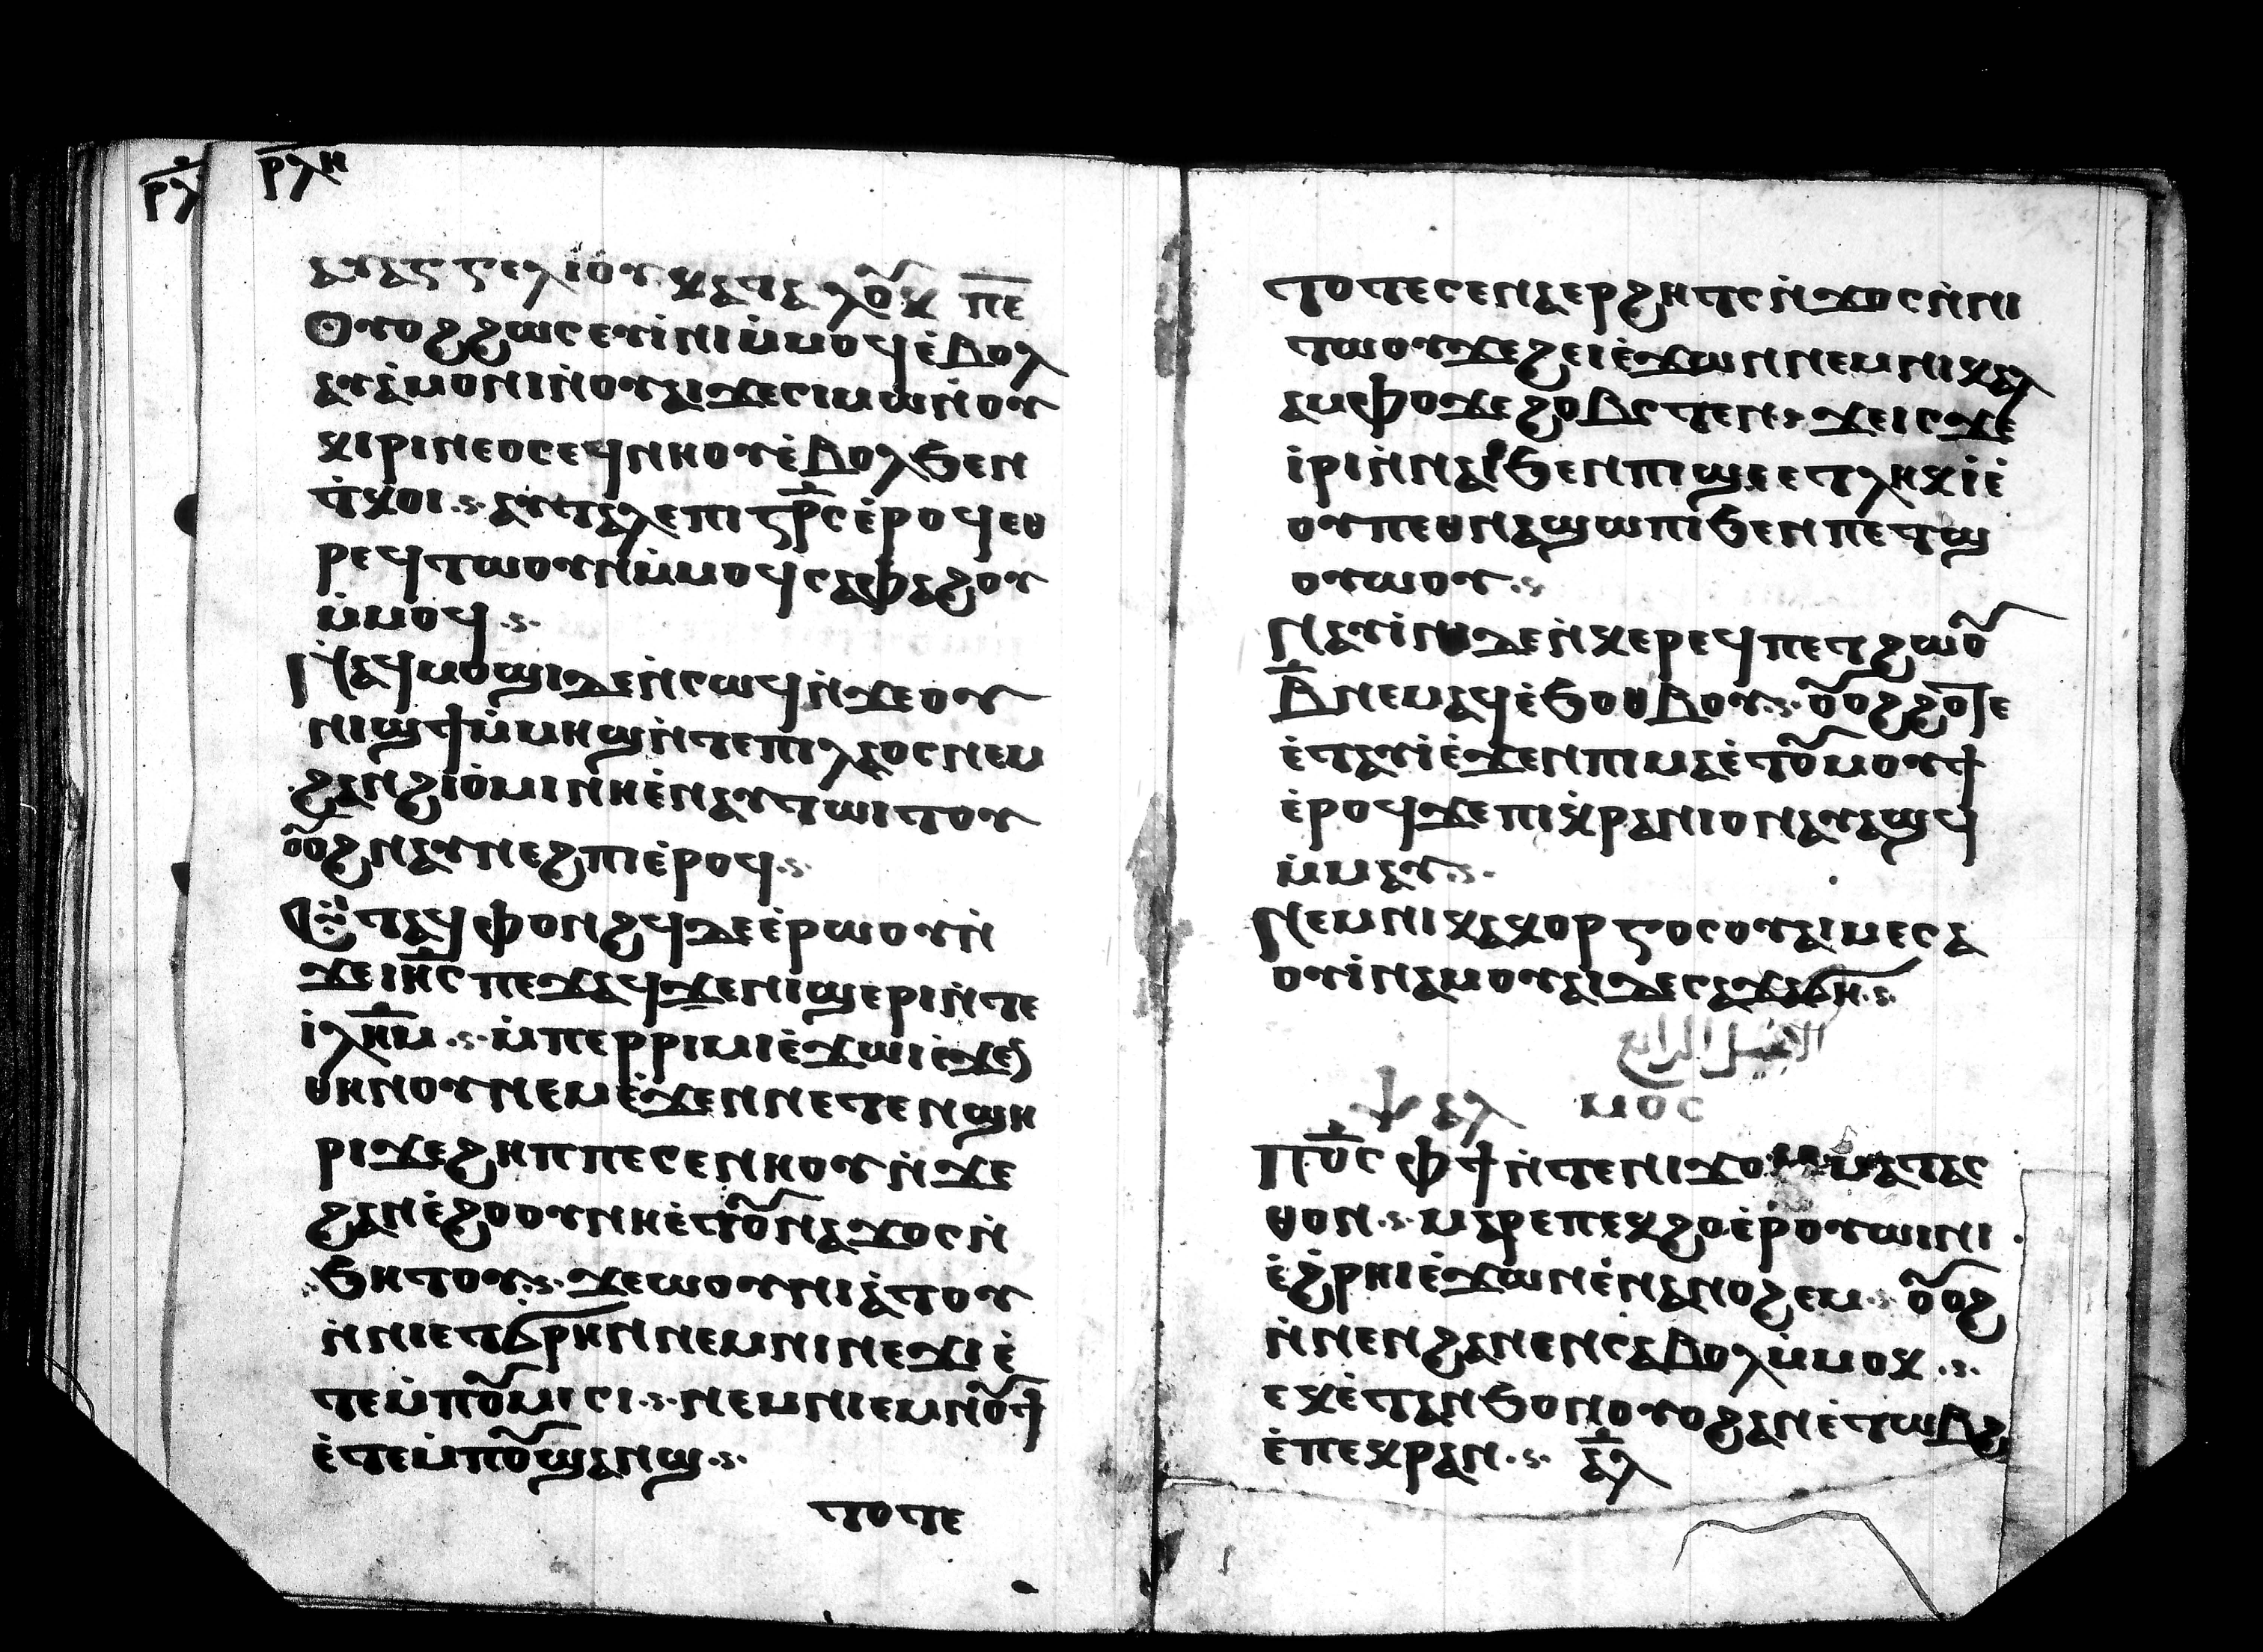 ⲣ̅ⲗ̅ ⲣ̅ⲗ̅ⲏ
ⲉⲩⲁⲅⲅⲉⲗⲓⲟⲩ ⲕⲁⲧⲁ ⲗⲟⲩⲕ ⲡ̅ⲉ̅
Ⲟⲩⲟϩ ϩⲱⲥ ⲉⲩⲓ̀ⲛⲓ ⲙ̀ⲙⲟϥ ⲉ̀ⲃⲟⲗ
ⲁⲩⲁ̀ⲙⲟⲛⲓ ⲛ̀ⲟⲩⲁⲓ ϫⲉ ⲥⲓⲙⲱⲛ ⲟⲩ
ⲕⲓⲣⲓⲛⲉⲟⲥ ⲉϥⲛⲏⲟⲩ ⲉ̀ⲃⲟⲗ ϧⲉⲛ
ⲧ̀ⲕⲟⲓ ⲁⲩⲧⲁⲗⲉ ⲡⲓⲥ̅ⲣ̅ⲥ ⲉ̀ⲣⲟϥ ⲉⲑ
ⲣⲉϥⲧⲱⲟⲩⲛ ⲙ̀ⲙⲟϥ ⲥⲁⲫⲁϩⲟⲩ
ⲙ̀ⲙⲟϥ
Ⲛⲁϥⲙⲟϣⲓ ⲇⲉ ⲛ̀ⲥⲱϥ ⲛ̀ϫⲉ ⲟⲩ
ⲛⲓϣϯ ⲙ̀ⲙⲏϣ ⲛ̀ⲧⲉ ⲡⲓⲗⲁⲟⲥ ⲛⲉⲙ
ϩⲁⲛϩⲓⲟ̀ⲙⲓ ⲛⲏ ⲉ̀ⲛⲁⲩⲧⲱⲓⲧⲟⲩ
ⲟⲩⲟϩ ⲛⲁⲩⲛⲉϩⲡⲓ ⲉ̀ⲣⲟϥ
Ⲉⲧⲁϥⲫⲟⲛϩϥ ⲇⲉ ⲉ̀ⲣⲱⲟⲩ ⲛ̀
ϫⲉ ⲓⲏ̅ⲥ ⲡⲉϫⲁϥ ϫⲉ ⲛⲓϣⲉⲣⲓ ⲛ̀ⲧⲉ
ⲓ̀ⲗⲏ̅ⲙ ⲙ̀ⲡⲉⲣⲣⲓⲙⲓ ⲉ̀ϫⲱⲓ ⲉ̀ϫⲉⲛ
ⲑⲏⲛⲟⲩ ⲛⲉⲙ ⲉ̀ϫⲉⲛ ⲛⲉⲧⲉⲛϣⲏ
ⲣⲓ ϫⲉ ϩⲏⲡⲡⲉ ⲥⲉⲛⲏⲟⲩ ⲛ̀ϫⲉ
ϩⲁⲛⲉ̀ϩⲟⲟⲩ ⲛⲏ ⲉ̀ⲧⲟⲩⲛⲁϫⲟⲥ ⲛ̀
ϧⲏⲧⲟⲩ ϫⲉ ⲱⲟⲩⲛⲓⲁ̀ⲧⲟⲩ
ⲛ̀ⲛⲓⲉⲧϭⲣⲏⲛ ⲛⲉⲙ ⲛⲓⲛⲉϫⲓ ⲉ̀
ⲧⲉ ⲙ̀ⲡⲟⲩⲙⲓⲥⲓ ⲛⲉⲙ ⲛⲓⲉⲙⲛⲟⲩϯ
ⲉ̀ⲧⲉ ⲙ̀ⲡⲟⲩϣⲁⲛϣ
ⲧⲟⲧⲉ
ⲧⲟⲧⲉ ⲥⲉⲛⲁⲉⲣϩⲏⲧⲥ ⲛ̀ϫⲟⲥ ⲛ̀ⲛⲓ
ⲧⲱⲟⲩ ϫⲉ ϩⲉⲓ ⲉ̀ϫⲱⲛ ⲛⲉⲙ ⲛⲓⲕⲁⲗ
ⲁⲙⲫⲟ ϫⲉ ϩⲟⲃⲥⲧⲉⲛ ϫⲉ ⲓⲥϫⲉ
ⲓ̀ⲣⲓ ⲛ̀ⲛⲁⲓ ϧⲉⲛ ⲡⲓϣⲉ ⲉⲧⲗⲏⲕ ⲓ̀ⲉ̀
ⲟⲩ ⲡⲉⲑⲛⲁϣⲱⲡⲓ ϧⲉⲛ ⲡⲉⲧϣ
ⲟⲩⲱⲟⲩ
Ⲛⲁⲩⲓ̀ⲛⲓ ⲇⲉ ⲛ̀ⲕⲉⲣⲉϥⲡⲉⲧϩⲱⲟⲩ
ⲃ̅ ⲛⲉⲙⲁϥ ⲉ̀ϧⲟⲑⲃⲟⲩ ⲟⲩⲟϩ ϩⲟⲧⲉ
ⲉ̀ⲧⲁⲩⲓ̀ ⲉ̀ϫⲉⲛ ⲡⲓⲙⲁ ⲉ̀ⲧⲟⲩⲙⲟⲩϯ
ⲉ̀ⲣⲟϥ ϫⲉ ⲡⲓⲕ̀ⲣⲁⲛⲓⲟⲛ ⲁⲩⲁϣϥ
ⲙ̀ⲙⲁⲩ
Ⲛⲉⲙ ⲛⲓⲕⲁⲕⲟⲩⲣⲅⲟⲥ ⲟⲩⲁⲓ ⲙⲉⲥⲁ
ⲟⲩⲓ̀ⲛⲁⲙ ⲟⲩⲁⲓ ⲇⲉ ⲥⲁϫⲁϭⲏ
الانجيل الرابع
ⲯⲁⲗ ⲙⲟⲥ
Ⲡϭ̅ⲥ ⲫϯ ⲛ̀ⲧⲉ ⲛⲓϫⲟⲙ ⲙⲁⲧⲁⲥ
ⲑⲟⲛ ⲙⲁⲣⲉ ⲡⲉⲕϩⲟ ⲉ̀ⲣⲟⲩⲱⲓⲛⲓ
ⲉ̀ϩ̀ⲣⲏⲓ ⲉ̀ϫⲱⲛ ⲉ̀ⲛⲁⲛⲟϩⲉⲙ ⲟⲩⲟϩ
ⲛ̀ⲛⲉⲛϩⲁⲛⲉⲛ ⲥⲁⲃⲟⲗ ⲙ̀ⲙⲟⲕ
ⲉⲕⲉ̀ⲧⲁⲛϧⲟⲛ ⲟⲩⲟϩ ⲁⲛⲉ̀ⲧⲱⲃϩ
ⲉ̀ⲡⲉⲕⲣⲁⲛ ⲁ̅ⲗ̅